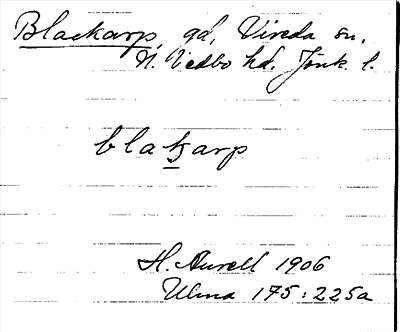 Blackarp, gd, Vireda sn,
N. Vedbo hd. Jönk. l.
blakarp
H. Aurell 1906
Ulma 175:225a